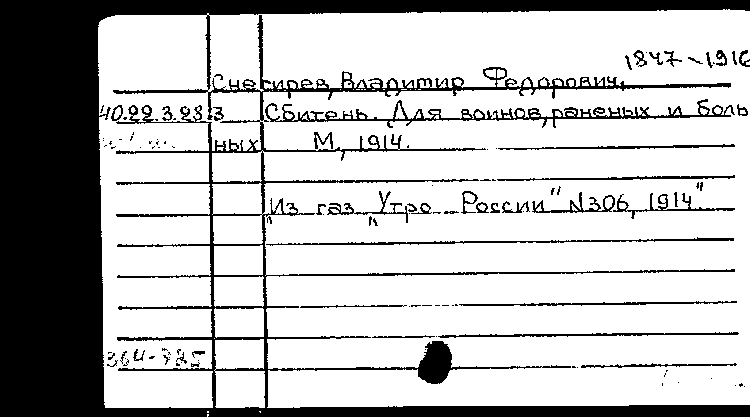 1847-1916
Снегирев, Владимир Федорович.
40.22.3.283 Сбитень. Для воинов, раненых и боль
ных М., 1914.
"Из газ. "Утро России" N306, 1914"
364-725